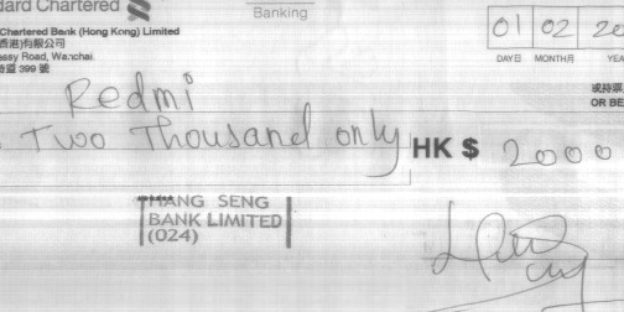 dard Chartered
Banking
Chartered Bank (Hong Kong) Limited
香港)有限公司
Road, Wanchai
道 399 號
01 02 20
DAY日 MONTH月 YEA
Redmi
或持票
OR BE
Two Thousand only HK $ 2000
HANG SENG
BANK LIMITED
(024)